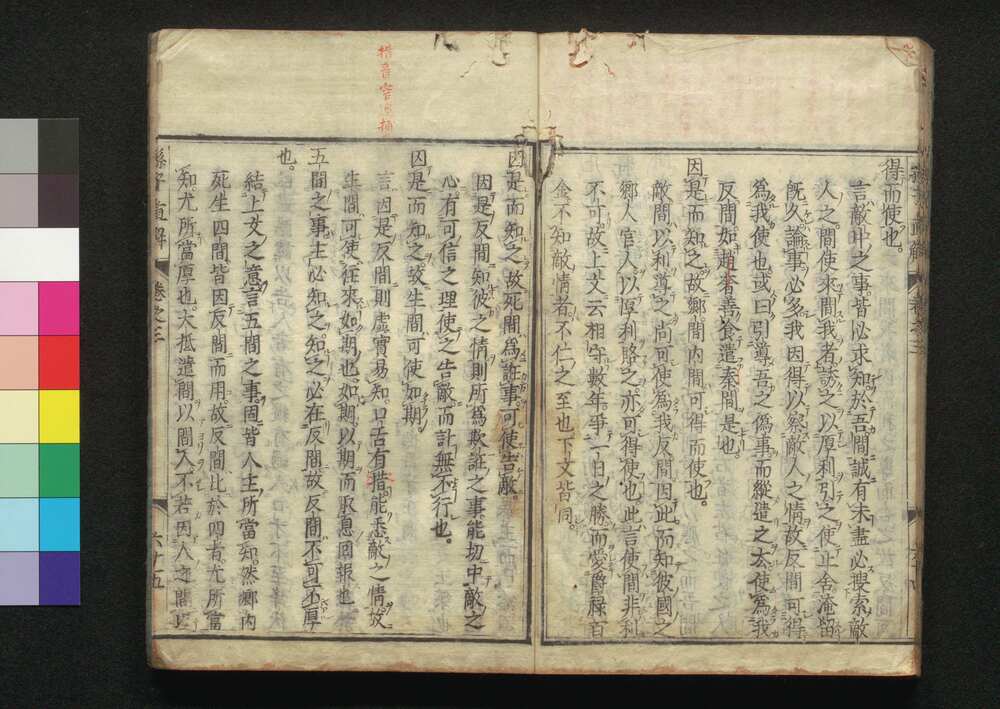 得而使也。
言敵中之事皆必求知於吾間誠有未盡必搜索敵
人之間使來間我者誘之以厚利引之使止舍淹留
既久論事必多我因得以察敵人之情故反間可得
為我使也或曰引導吾之偽事而縱遣之太使為我
反間如趙奢善食遣秦間是也
因是而知之故鄉間內間可得而使也。
敵間以利導之尚可使為我反間因此而知彼國之
鄉人官人以厚利賂之亦可得使也此言使間非利
不可故上文云相守數年爭一日之勝而愛爵祿百
金不知敵情者不仁之至也下文皆同
因是而知之故死間為誑事可使告敵。
因是反間知彼之情則所為欺誑之事能切中敵之
心有可信之理使之告敵而計無不行也。
因是而知之故生間可使如期。
言因是反間則虛實易知口舌有措能悉敵之情故
生間可使往來如期也如期以期而取息回報也
五間之事主必知之知之必在反間故反間不可不厚
也。
結上文之意言五間之事固皆人主所當知然鄉內
死生四間皆因反間而用故反間比於四者尤所當
知尤所當厚也大抵遣間以間人不若因人之間以
孫子直解
卷之三
六十五